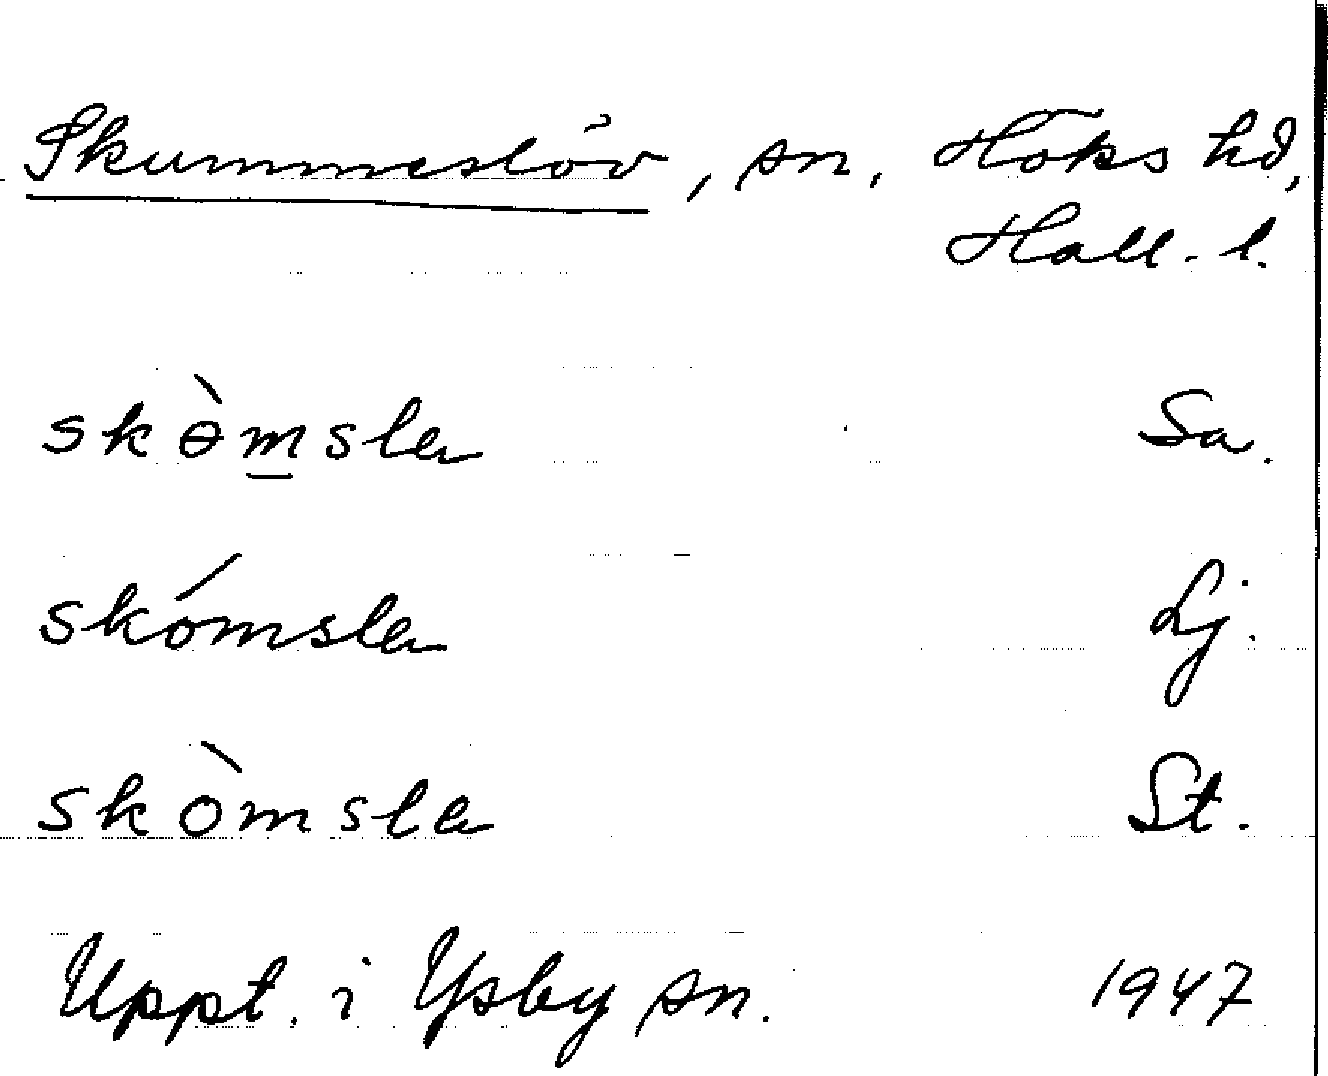 Skummeslöv, sn, Höks hd,
Hall. l.
skɵ̀m̲sla Sa.
skómsla Lj.
skòmsla St.
Uppt. i Ysby sn. 1947